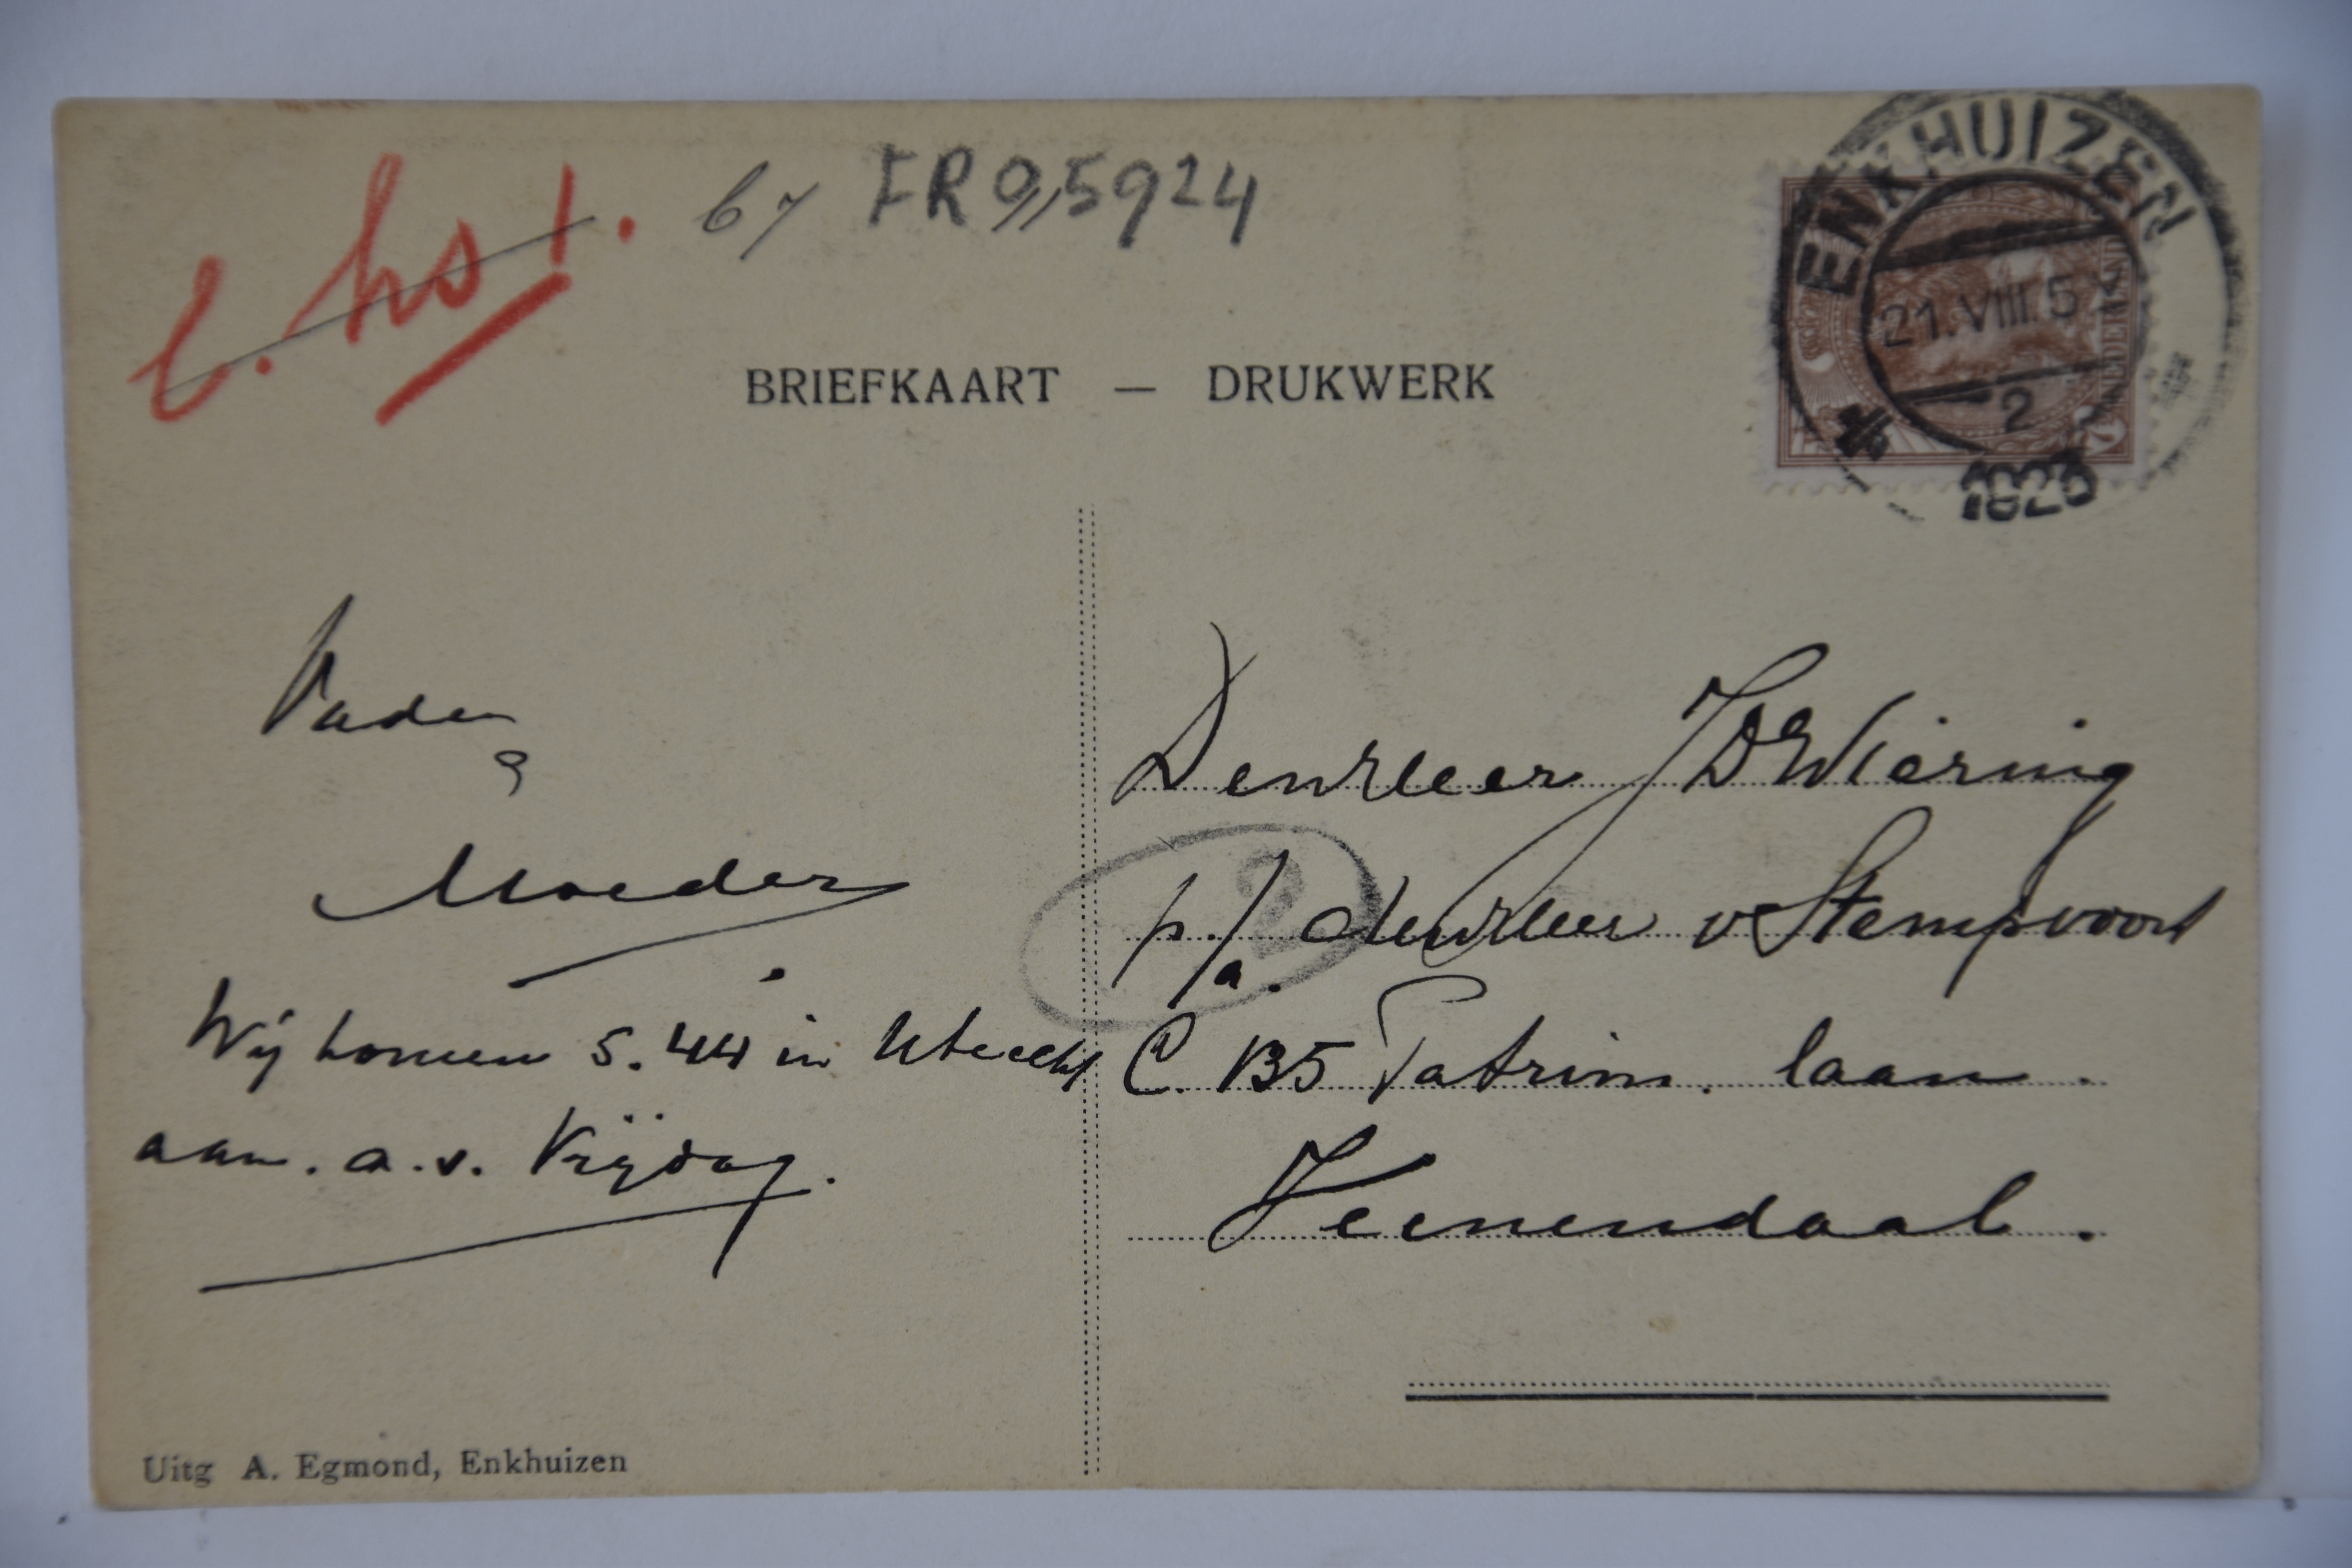 b7 FR 0,5924
ENKHUIZEN
21.VIII.5
2
1923
NEDERLAND
BRIEFKAART — DRUKWERK
Vader
&
Moeder
Wij komen 5.44 in Utrecht
aan. a.s. Vrijdag.
Uitg A. Egmond, Enkhuizen
2
Den Heer J D Wiering
p/a. den Heer v Stempvoort
C. 135 Patrim. laan.
Veenendaal.